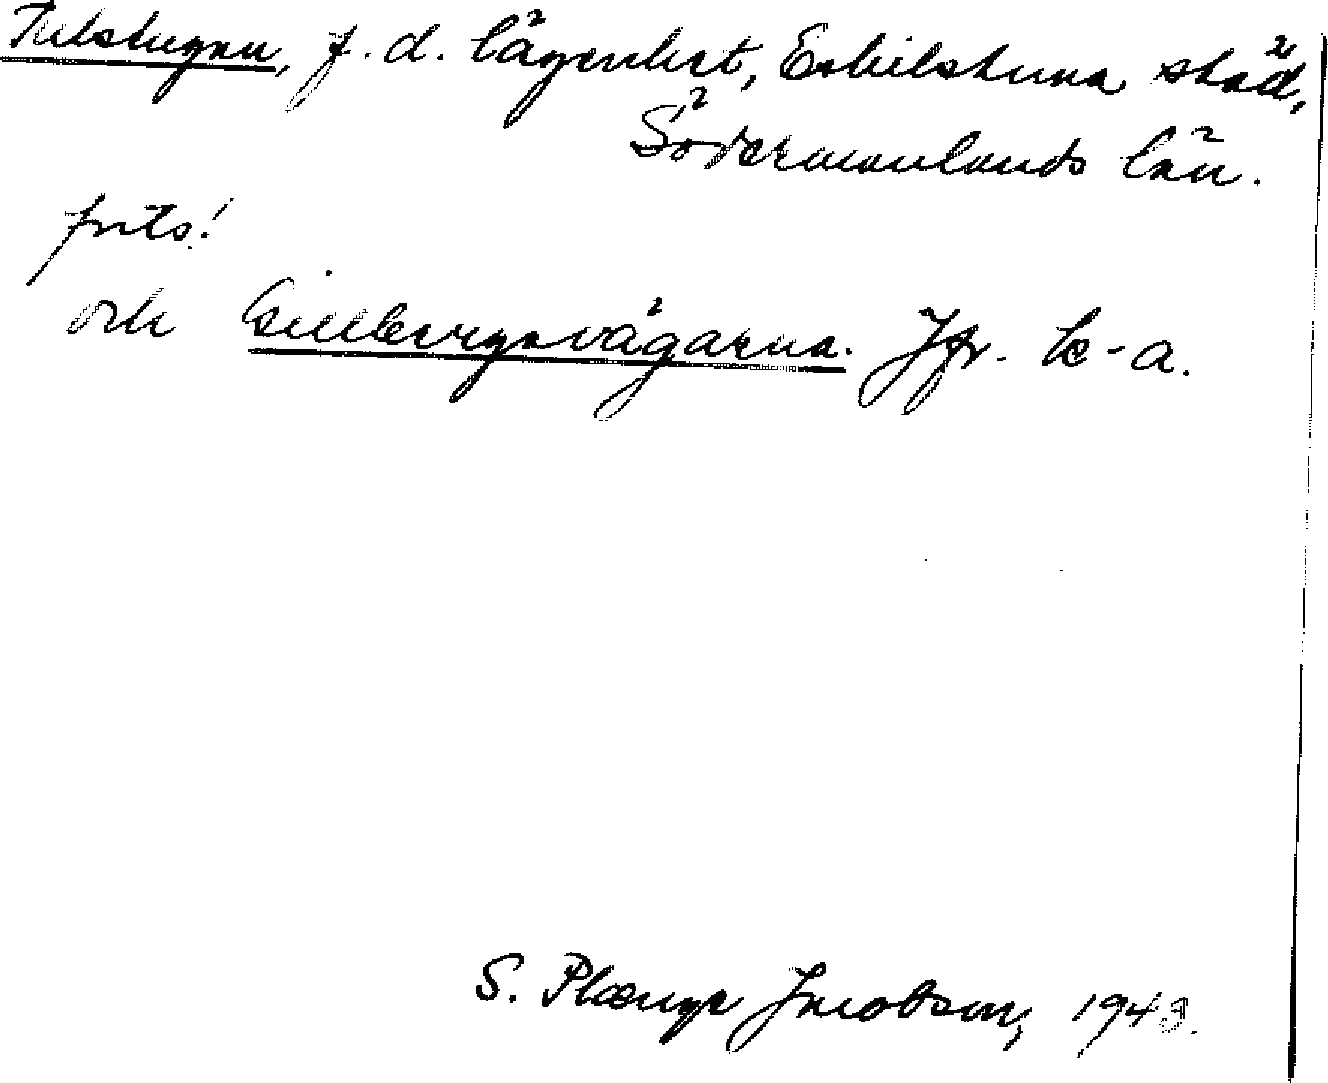 Tulstugan, f. d. lägenhet, Eskilstuna städ,
Södermanlands län.
forts!
och Gillbergavägarna. Jfr. k-a.
S. Plænge Jacobson, 1943.